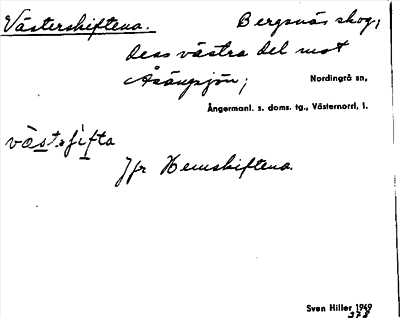 Västerskiftena. Bergsnäs skog;
dess västra del mot
Åsängsjön; Nordingrå sn,
Ångermanl. s. doms. tg., Västernorrl, l.
Jfr Hemskiftena.
Sven Hiller 1949
378